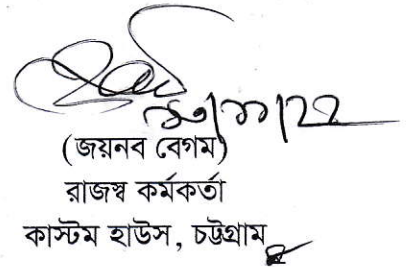 (জয়নব বেগম)
রাজস্ব কর্মকর্তা
কাস্টম হাউস, চট্টগ্রাম